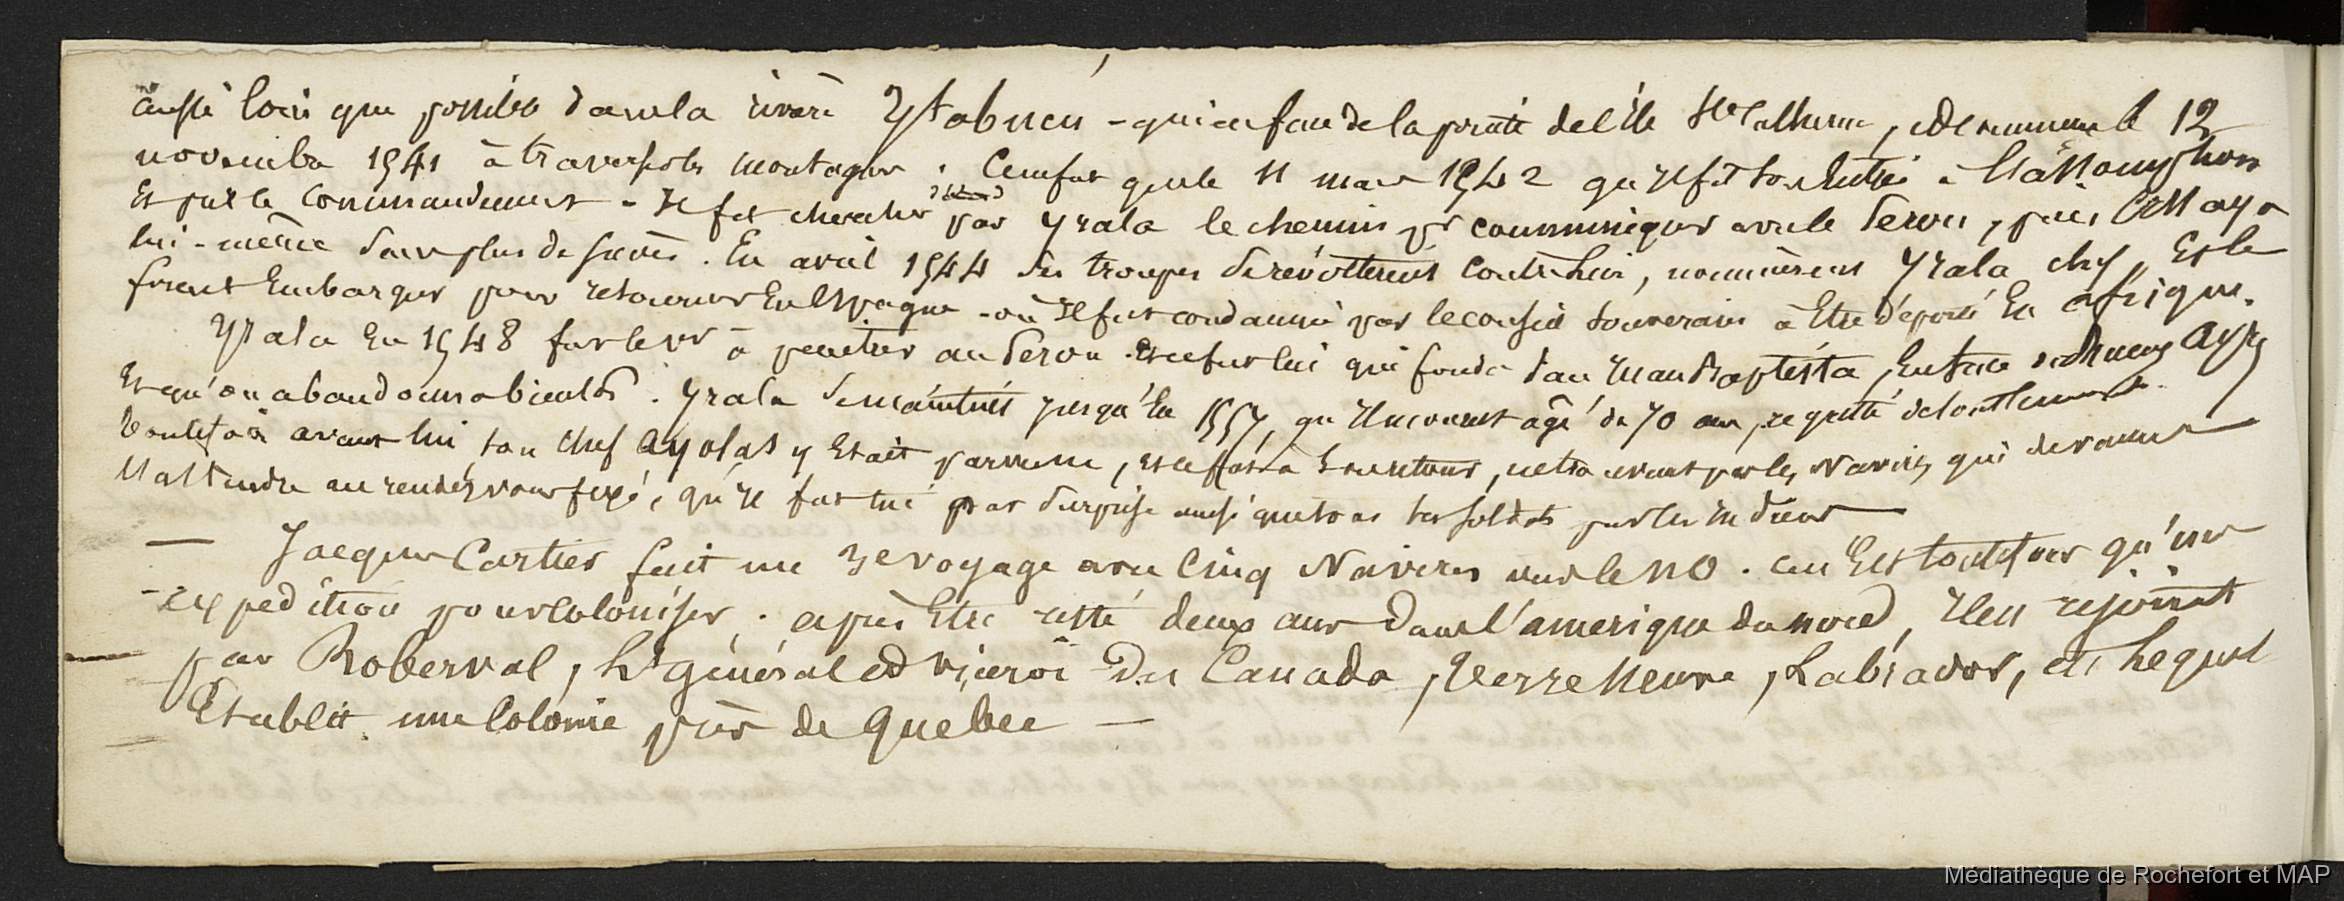 aussi loin que possible dans la rivière Ytabucu - qui en face de la pointe de l'île Ste Catherine, et le 12
novembre 1541 à travers les montagnes. Ce ne fut que le 11 mars 1542 qu'il fit son entrée à l'assomption
Et prit le commandement - Il fit chercher par Yrala le chemin pr communiquer avec le Perou, puis alla
lui-même sans plus de succès. En avril 1544 ses troupes se révoltèrent contre lui, nommèrent Yrala chef, Et le
firent Embarquer pour retourner En Espagne - où Il fut condamné par le conseil souverain à être déporté En afrique.
Yrala En 1548 fut le 1er à pénétrer au Perou. Et ce fut lui qui fonda San Juan Baptista, En face de Buenos Ayres
Et qu'on abandonna bientôt. Yrala se maintint jusqu'En 1557, qu'Il mourut agé de 70 ans, regretté de tout le monde.
Toutefois avant lui, son chef Ayolas y Etait parvenu, et ce fut à par les Navires qui devaient
l'attendre au rendez vous fixé, qu'Il fut tué par surprise ainsi que tous ses soldats par les Indiens
— Jacques Cartier fait un 3e voyage avec Cinq Navires vers le NO. c'en Est toutefois qu'une
expédition pour coloniser. après Etre resté deux ans dans l'amerique du nord, Il est rejoint
par Roberval, Lt général et viceroi du Canada, Terre Neuve, Labrador, et Lequel
Etablit une Colonie près de Quebec —
Médiathèque de Rochefort et MAP